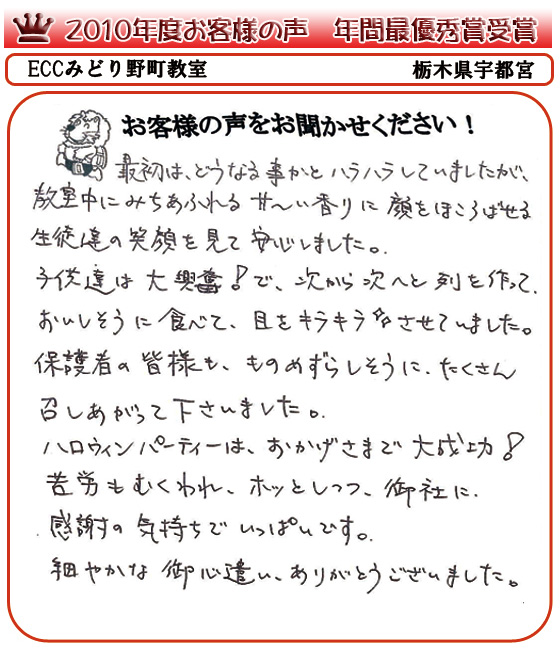 2010年度お客様の声 年間最優秀賞受賞
ECCみどり野町教室 栃木県宇都宮
お客様の声をお聞かせください！
最初は、どうなる事かとハラハラしていましたが、
教室中にみちあふれる甘〜い香りに顔をほころばせる
生徒達の笑顔を見て安心しました。
子供達は大興奮！で、次から次へと列を作って、
おいしそうに食べて、目をキラキラさせていました。
保護者の皆様も、ものめずらしそうに、たくさん
召しあがって下さいました。
ハロウィンパーティーは、おかげさまで大成功！
苦労もむくわれ、ホッとしつつ、御社に、
感謝の気持ちでいっぱいです。
細やかな御心遣い、ありがとうございました。